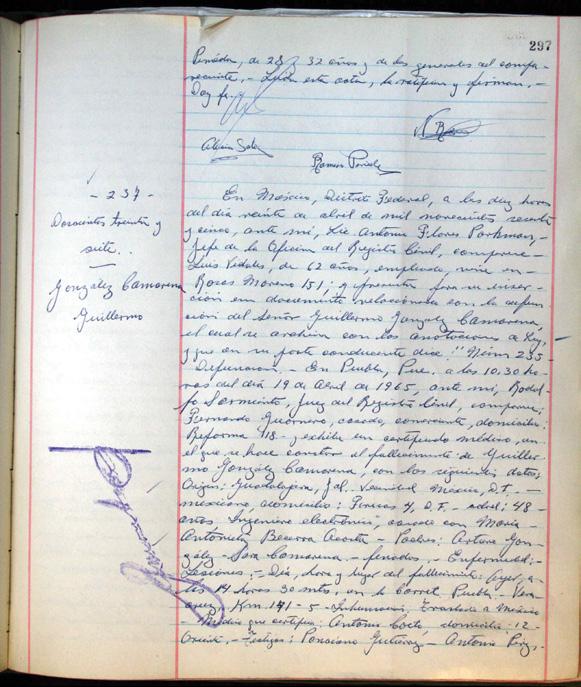 297
de 28 y 32 años y de los generales del compa-
reciente.- Leída esta acta, la ratifican y firman.-
Doy fe.
- 237 -
Doscientos treinta y
siete..
González Camarena
Guillermo
En México, Distrito Federal, a las diez horas
del día veinte de abril de mil novecientos sesenta
y cinco, ante mí, Lic Antonio Flores
Jefe de la Oficina del Registro Civil, comparece
Luis Vidales, de 62 años, empleado, vive en
Rosas Moreno 151, y presenta para su inser-
ción un documento relacionado con la defun-
ción del Señor Guillermo González Camarena,
el cual se archiva con las anotaciones de Ley,
y que en su parte conducente dice: "Núm 235
Defunción - En Puebla, Pue. a las 10.30 ho-
ras del día 19 de Abril de 1965, ante mí, Rodol-
fo Sarmiento, Juez del Registro Civil, comparece:
Fernando Guerrero, casado, comerciante, domicilio:
Reforma 718 y exhibe un certificado médico, en
el que se hace constar el fallecimiento de Guiller-
mo González Camarena, con los siguientes datos;
Origen: Guadalajara, Jal. Vecindad México, D.F. -
mexicano, domicilio: D.F. - edad: 48
años - Ingeniero electrónico, casado con María
Antonieta Becerra Acosta - Padres: Arturo Gon-
zález - Sara Camarena - finados, - Enfermedad:
Lesiones, - Día, hora y lugar del fallecimiento: ayer, a
las 14 horas 30 mts, en la Puebla - Vera-
cruz, Km. 141 - 5 - Inhumación, Traslado a México
- Médico que certifica: Antonio domicilio 12
- Testigos: Ponciano Gutiérrez - Antonio